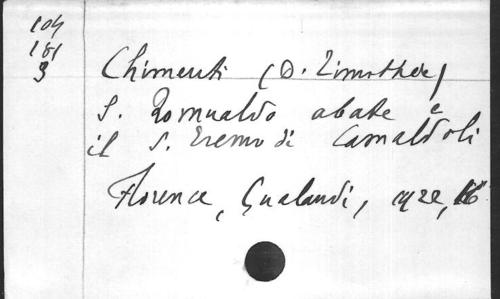 104
181
3
Chimenti (D. Timothee)
S. Romualdo abate e
il S. Eremo di Camaldoli
Florence, Gualandi, 1922,